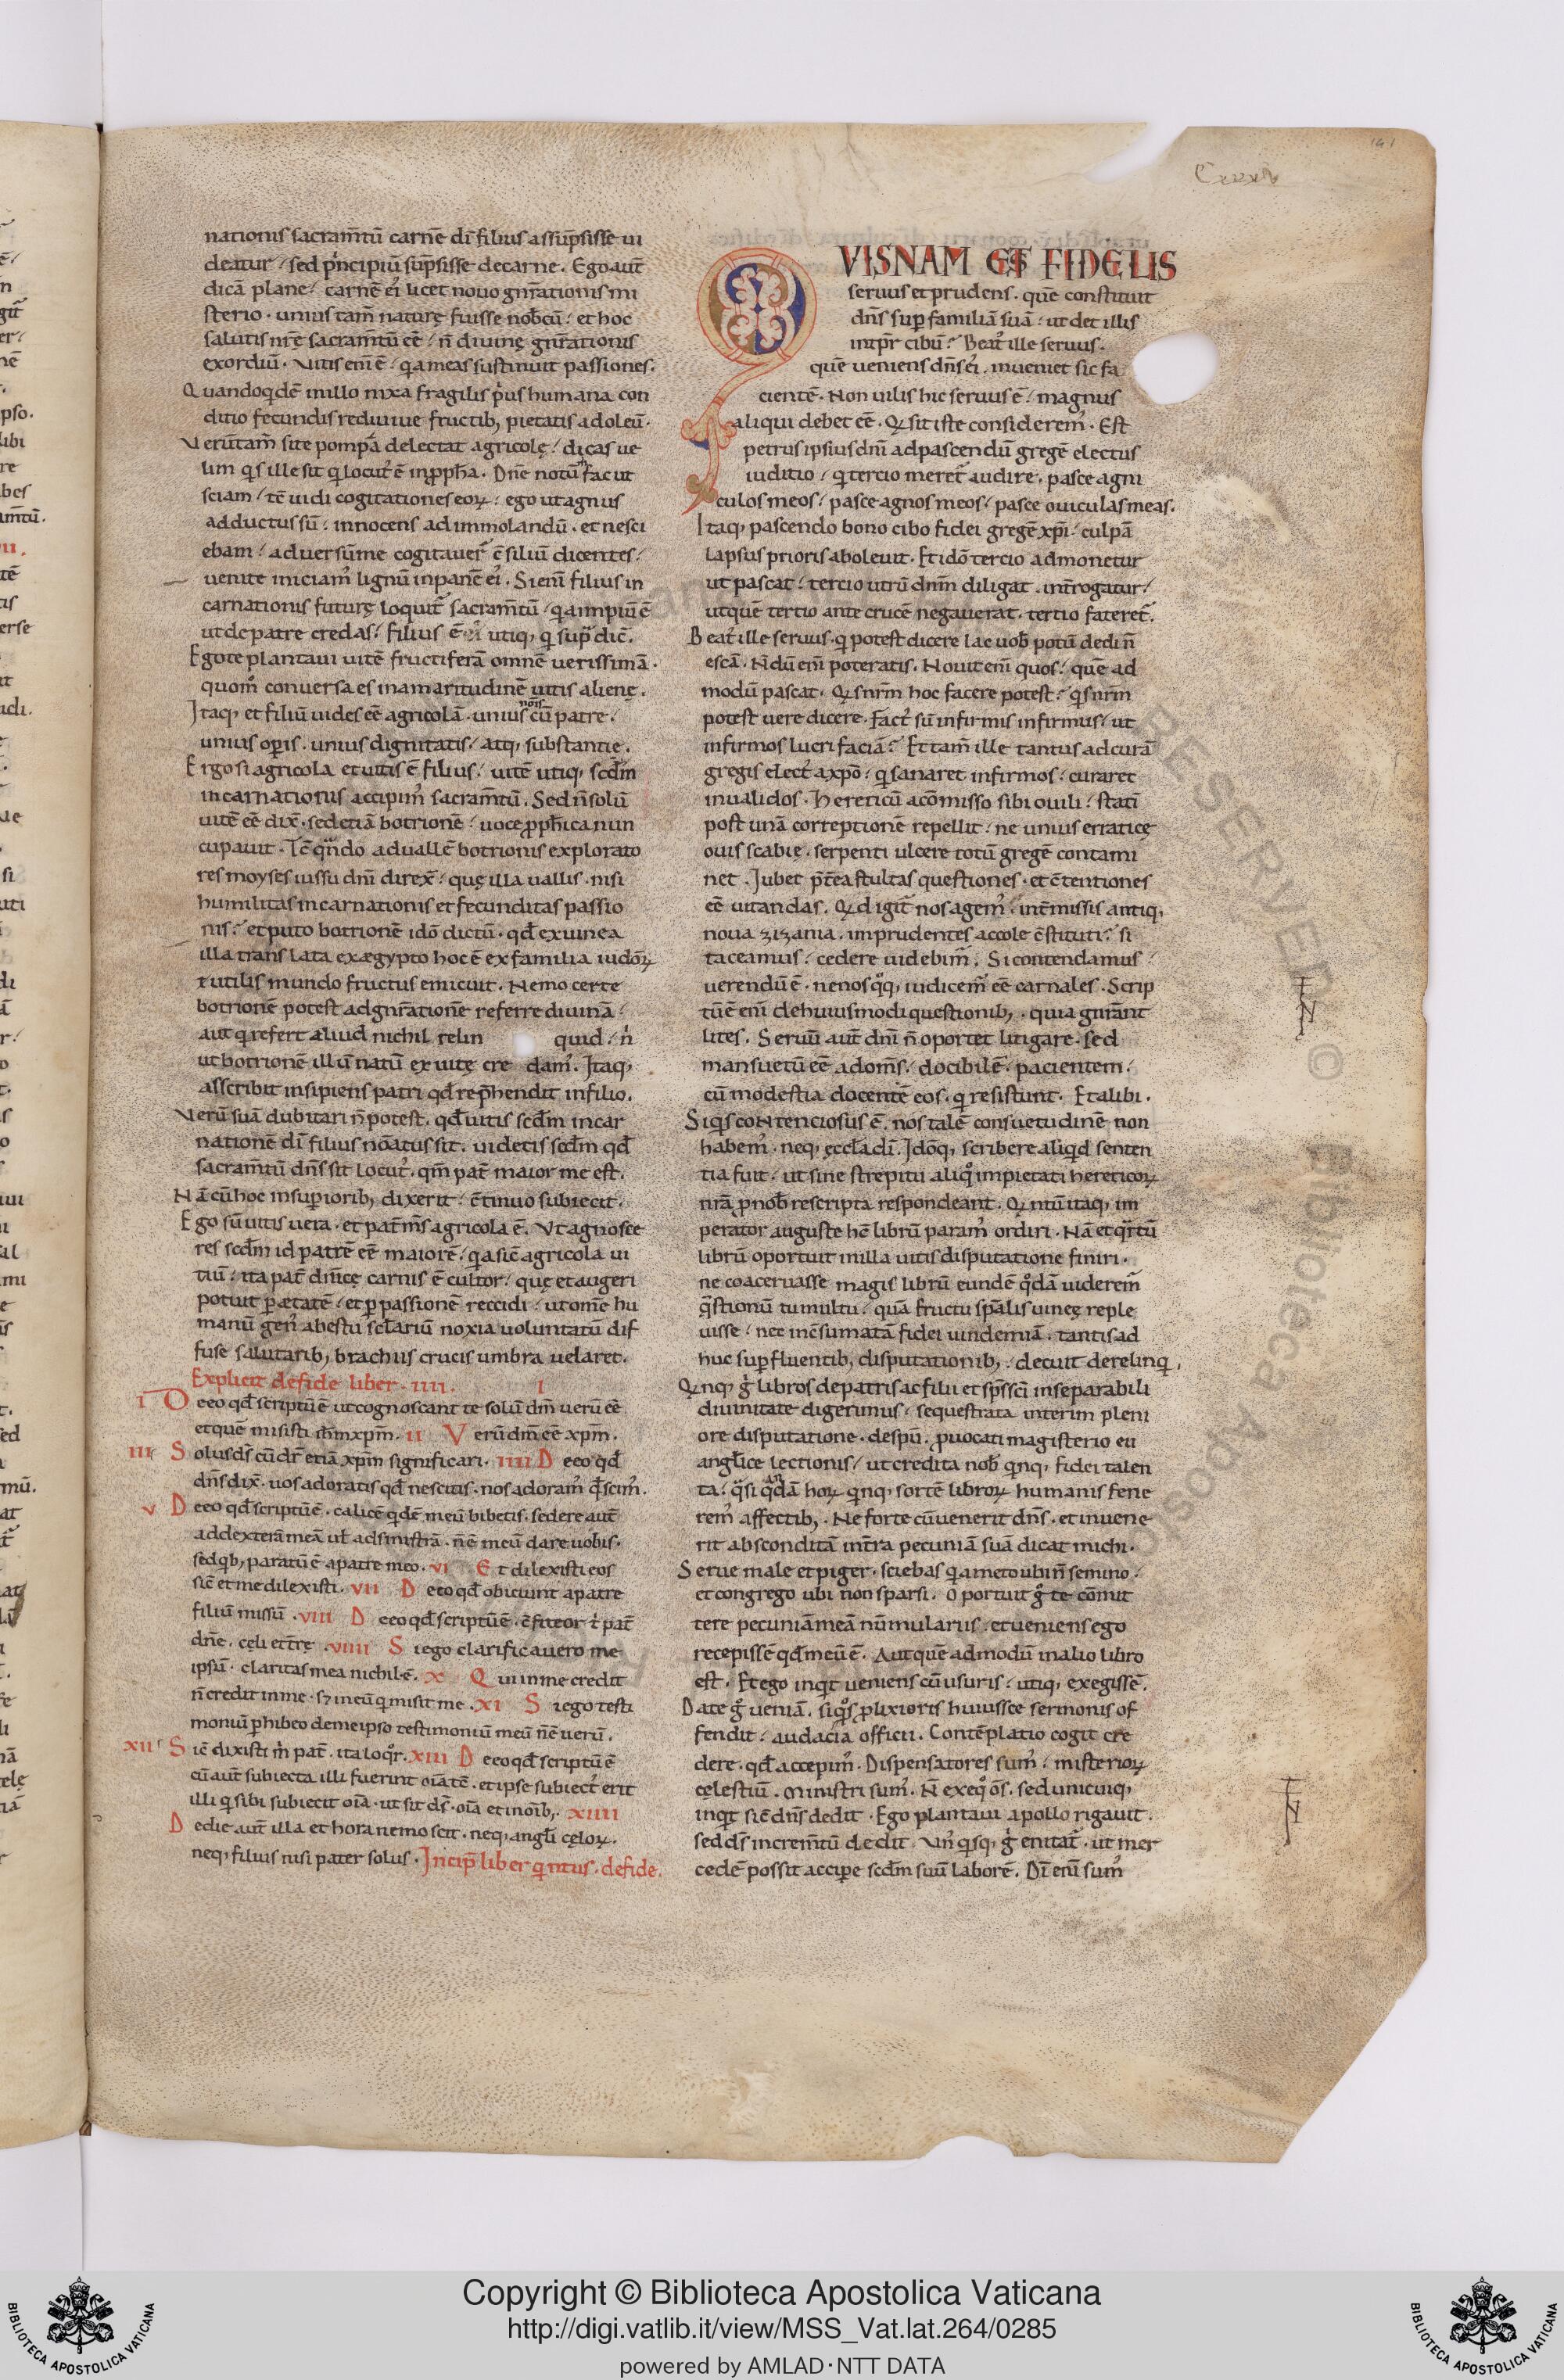 nationis sacram̄tū carnē dī filius assūpsisse ui
deatur / sed p̓ncipiū sūpsisse decarne. Ego aut̄
dicā plane / carnē ei᾿ licet nouo gn̄rationis mi
sterio · unius tam̄ naturę fuisse nobcū / et hoc
salutis nr̄e sacram̄tū eē / n̄ diuinę gn̄rationis
exordiū. Vitis em̄ ē / q̓a meas sustinuit passiones.
Quandoq̓dē in illo nixa fragilis p̓us humana con
ditio fecundis rediuiue fructib; pietatis adoleū.
Verūtam̄ si te pompa delectat agricolę / dicas ue
lim q̓s ille sit q̓ locut᾿ ē in pph̄a. Dn̄e notū fac ut
sciam / tē uidi cogitationes eoꝝ / ego ut agnus
adductus sū / innocens ad immolandū. et nesci
ebam / aduersū me cogitauer̄ cē siliū dicentes /
uenite iniciam᾿ lignū inpanē ei᾿. Si eni filius in
carnationis futurę loquit̄ sacram̄tū / q̓a impiū ē
ut de patre credas / filius ē utiq; q̓ sup᷑ dic̄.
Ego te plantaui uitē fructiferā omnē uerissimā.
quom° conuersa es in amaritudinē uitis alienę.
Itaq; et filiū uides eē agricolā. unius nōis cū patre /
unius oꝑis. unius dignitatis / atq; substantie.
Ergo si agricola et uitis ē filius / uitē utiq; scd̄m
incarnationis accipim᾿ sacram̄tū. Sed n̄ solū
uitē eē dix̄. sed etiā botrionē / uoce ꝓph̄ica nun
cupauit. Tc̄ qn̄do ad uallē botrionis explorato
res moyses iussu dn̄i direx̄ / quę illa uallis. nisi
humilitas incarnationis et fecunditas passio
nis / et puto botrionē idō dictū. qd̄ ex uinea
illa translata ex ægypto hoc ē ex familia iudōꝝ
& utilis mundo fructus emicuit. Nemo certe
botrionē potest ad gn̄rationē referre diuinā /
aut q̓ refert aliud nichil relin quid / n̓
ut botrionē illū natū ex uite cre dam᾿. Itaq;
asscribit insipiens patri qd̄ rep̄hendit in filio.
Verū suā dubitari n̄ potest. qd̄ uitis scd̄m incar
nationē dī filius nōatus sit. uidetis scd̄m qd̄
sacram̄tū dn̄s sit locut᾿. qm̄ pat̄ maior me est.
Nā cū hoc in suꝑiorib; dixerit / cētinuo subiecit.
Ego sū uitis uera. et pat̄ m̄s agricola ē. Vt agnosce
res scd̄m id patrē eē maiorē / q̓a sic̄ agricola ui
tiū / ita pat̄ dn̄icę carnis ē cultor / quę et augeri
potuit p̄ ætatē / et ꝑ passionē reccidi / ut om̄e hu
manū gen᾿ ab estu scl̄ariū noxia uoluntatū dif
fuse salutarib; brachiis crucis umbra uelaret.
Explicit de fide liber · IIII.
I De eo qd̄ scriptū ē ut cognoscant te solū dm̄ uerū eē I
et quē misisti ihm̄ xpm̄. II Verū dm̄ eē xpm̄.
III Solus ds̄ cū dr̄ etiā xpm̄ significari. IIII De eo qd̄
dn̄s dix̄. uos adoratis qd̄ nescitis. nos adoram᾿ qd̄ scim᾿.
V De eo qd̄ scriptū ē. calicē q̓dē meū bibetis. sedere aut̄
ad dexterā meā uł ad sinistrā. n̄ ē meū dare uobis.
sed qb; paratū ē a patre meo. VI Et dilexisti eos
sic̄ et me dilexisti. VII De eo qd̄ obiciunt a patre
filiū missū. VIII De eo qd̄ scriptū ē. cēfiteor t̓ pat̄
dn̄e. celi et tr̄ę. VIIII Si ego clarificauero me
ipsū. claritas mea nichil ē. X Qui in me credit
n̄ credit in me. sꝫ in eū q̓ misit me. XI Si ego testi
moniū ꝑhibeo de me ipso testimoniū meū n̄ ē uerū.
XII Sic̄ dixisti m̓ pat̄. ita loq̓r. XIII De eo qd̄ scriptū ē
cū aut̄ subiecta illi fuerint oīa tē. et ipse subiect᾿ erit
illi q̓ sibi subiecit oīa. ut sit ds̄. oīa et in oīb;. XIIII
De die aut̄ illa et hora nemo scit. neq; angl̄i cęloꝝ.
neq; filius nisi pater solus. Incip̄ liber q̓ntus. de fide.
QVISNAM EST FIDELIS
seruus et prudens. quē constituit
dn̄s suꝑ familiā suā / ut det illis
intpr̄ cibū / Beat᾿ ille seruus.
quē ueniens dn̄s ei᾿. inueniet sic fa
cientē. Non uilis hic seruus ē / magnus
aliqui debet eē. Qꝫ sit iste considerem᾿. Est
petrus ipsius dn̄i ad pascendū gregē electus
iuditio / q̓ tercio meret̄ audire. pasce agni
culos meos / pasce agnos meos / pasce ouiculas meas.
Itaq; pascendo bono cibo fidei gregē xp̄i / culpā
lapsus prioris aboleuit. Et idō tercio admonetur
ut pascat / tercio utrū dnm̄ diligat. int̄rogatur /
ut quē tertio ante crucē negauerat. tertio fateret̄.
Beat᾿ ille seruus. q̓ potest dicere lac uob̄ potū dedi n̄
escā. Nōdū eni poteratis. Nouit eni quos / quē ad
modū pascat. Qꝫ s nr̄m hoc facere potest / q̓s nr̄m
potest uere dicere. Fact᾿ sū infirmis infirmus / ut
infirmos lucrifaciā / Et tam̄ ille tantus ad curā
gregis elect᾿ a xpō / q̓ sanaret infirmos / curaret
inualidos. Hereticū a cōmisso sibi ouili / statī
post unā correptionē repellit / ne unius erraticę
ouis scabie. serpenti ulcere totū gregē contami
net. Iubet p̄t̄ea stultas questiones. et cētentiones
eē uitandas. Qꝫ d igit̄ nos agem᾿. int̄missis antiq;
noua zizania. imprudentes accole cēstituti / si
taceamus / cedere uidebim̄. Si contendamus /
uerendū ē. ne nos q°q; iudicem᾿ eē carnales. Scrip
tū ē eni de huiusmodi questionib;. quia gn̄rant
lites. Seruū aut̄ dn̄i n̄ oportet litigare. sed
mansuetū eē ad om̄s / docibilē / pacientem /
cū modestia docentē eos. q̓ resistunt. Et alibi.
Si q̓s coNtenciosus ē. nos talē consuetudinē non
habem᾿. neq; eccl̄a dī. Idōq; scribere aliq̓d senten
tia fuit / ut sine strepitu aliq° impietati hereticoꝝ
nr̄a ꝓ nob̄ rescripta respondeant. Qꝫ ntū itaq; im
perator auguste hc̄ librū param᾿ ordiri. Nā et qr̄tū
librū oportuit in illa uitis disputatione finiri.
ne coaceruasse magis librū eundē q°dā uiderem̄
q̄stionū tumultu / quā fructu spālis uineę reple
uisse / nec incēsumatā fidei uindemiā. tantis ad
huc suꝑfluentib; disputationib; / decuit derelinq̓.
Qꝫ nq; g̓ libros de patris ac filii et sp̄s sc̄i inseparabili
diuinitate digerimus / sequestrata interim pleni
ore disputatione. de spū. ꝓuocati magisterio eu
angl̄ice lectionis / ut credita nob̄ q̓nq; fidei talen
ta / q̄si q̓dā hoꝝ q̓nq; sortē libroꝝ humanis fene
rem᾿ affectib;. Ne forte cū uenerit dn̄s. et inuene
rit absconditā int̄ra pecuniā suā dicat michi.
Serue male et piger. sciebas q̓a meto ubi n̄ semino.
et congrego ubi non sparsi. Oportuit g° te cōmit
tere pecuniā meā nūmulariis. et ueniens ego
recepissē qd̄ meū ē. Aut quē admodū in alio libro
est. Et ego inq̓t ueniens cū usuris / utiq; exegissē.
Date g° ueniā. si q°s ꝓlixioris huiusce sermonis of
fendit / audacia officii. Contēplatio cogit cre
dere. qd̄ accepim᾿. Dispensatores sum᾿ / misterioꝝ
cęlestiū. Ministri sum᾿. N̄ exeq° ōs. sed unicuiq;
inq̓t sic̄ dn̄s dedit. Ego plantaui apollo rigauit.
sed ds̄ increm̄tū dedit. Vn᾿ q̓sq; g̓ enitat̄. ut mer
cedē possit accipe scd̄m suū laborē. Dī eni sum᾿
Copyright © Biblioteca Apostolica Vaticana
http://digi.vatlib.it/view/MSS_Vat.lat.264/0285
powered by AMLAD·NTT DATA
BIBLIOTECA APOSTOLICA VATICANA
BIBLIOTECA APOSTOLICA VATICANA